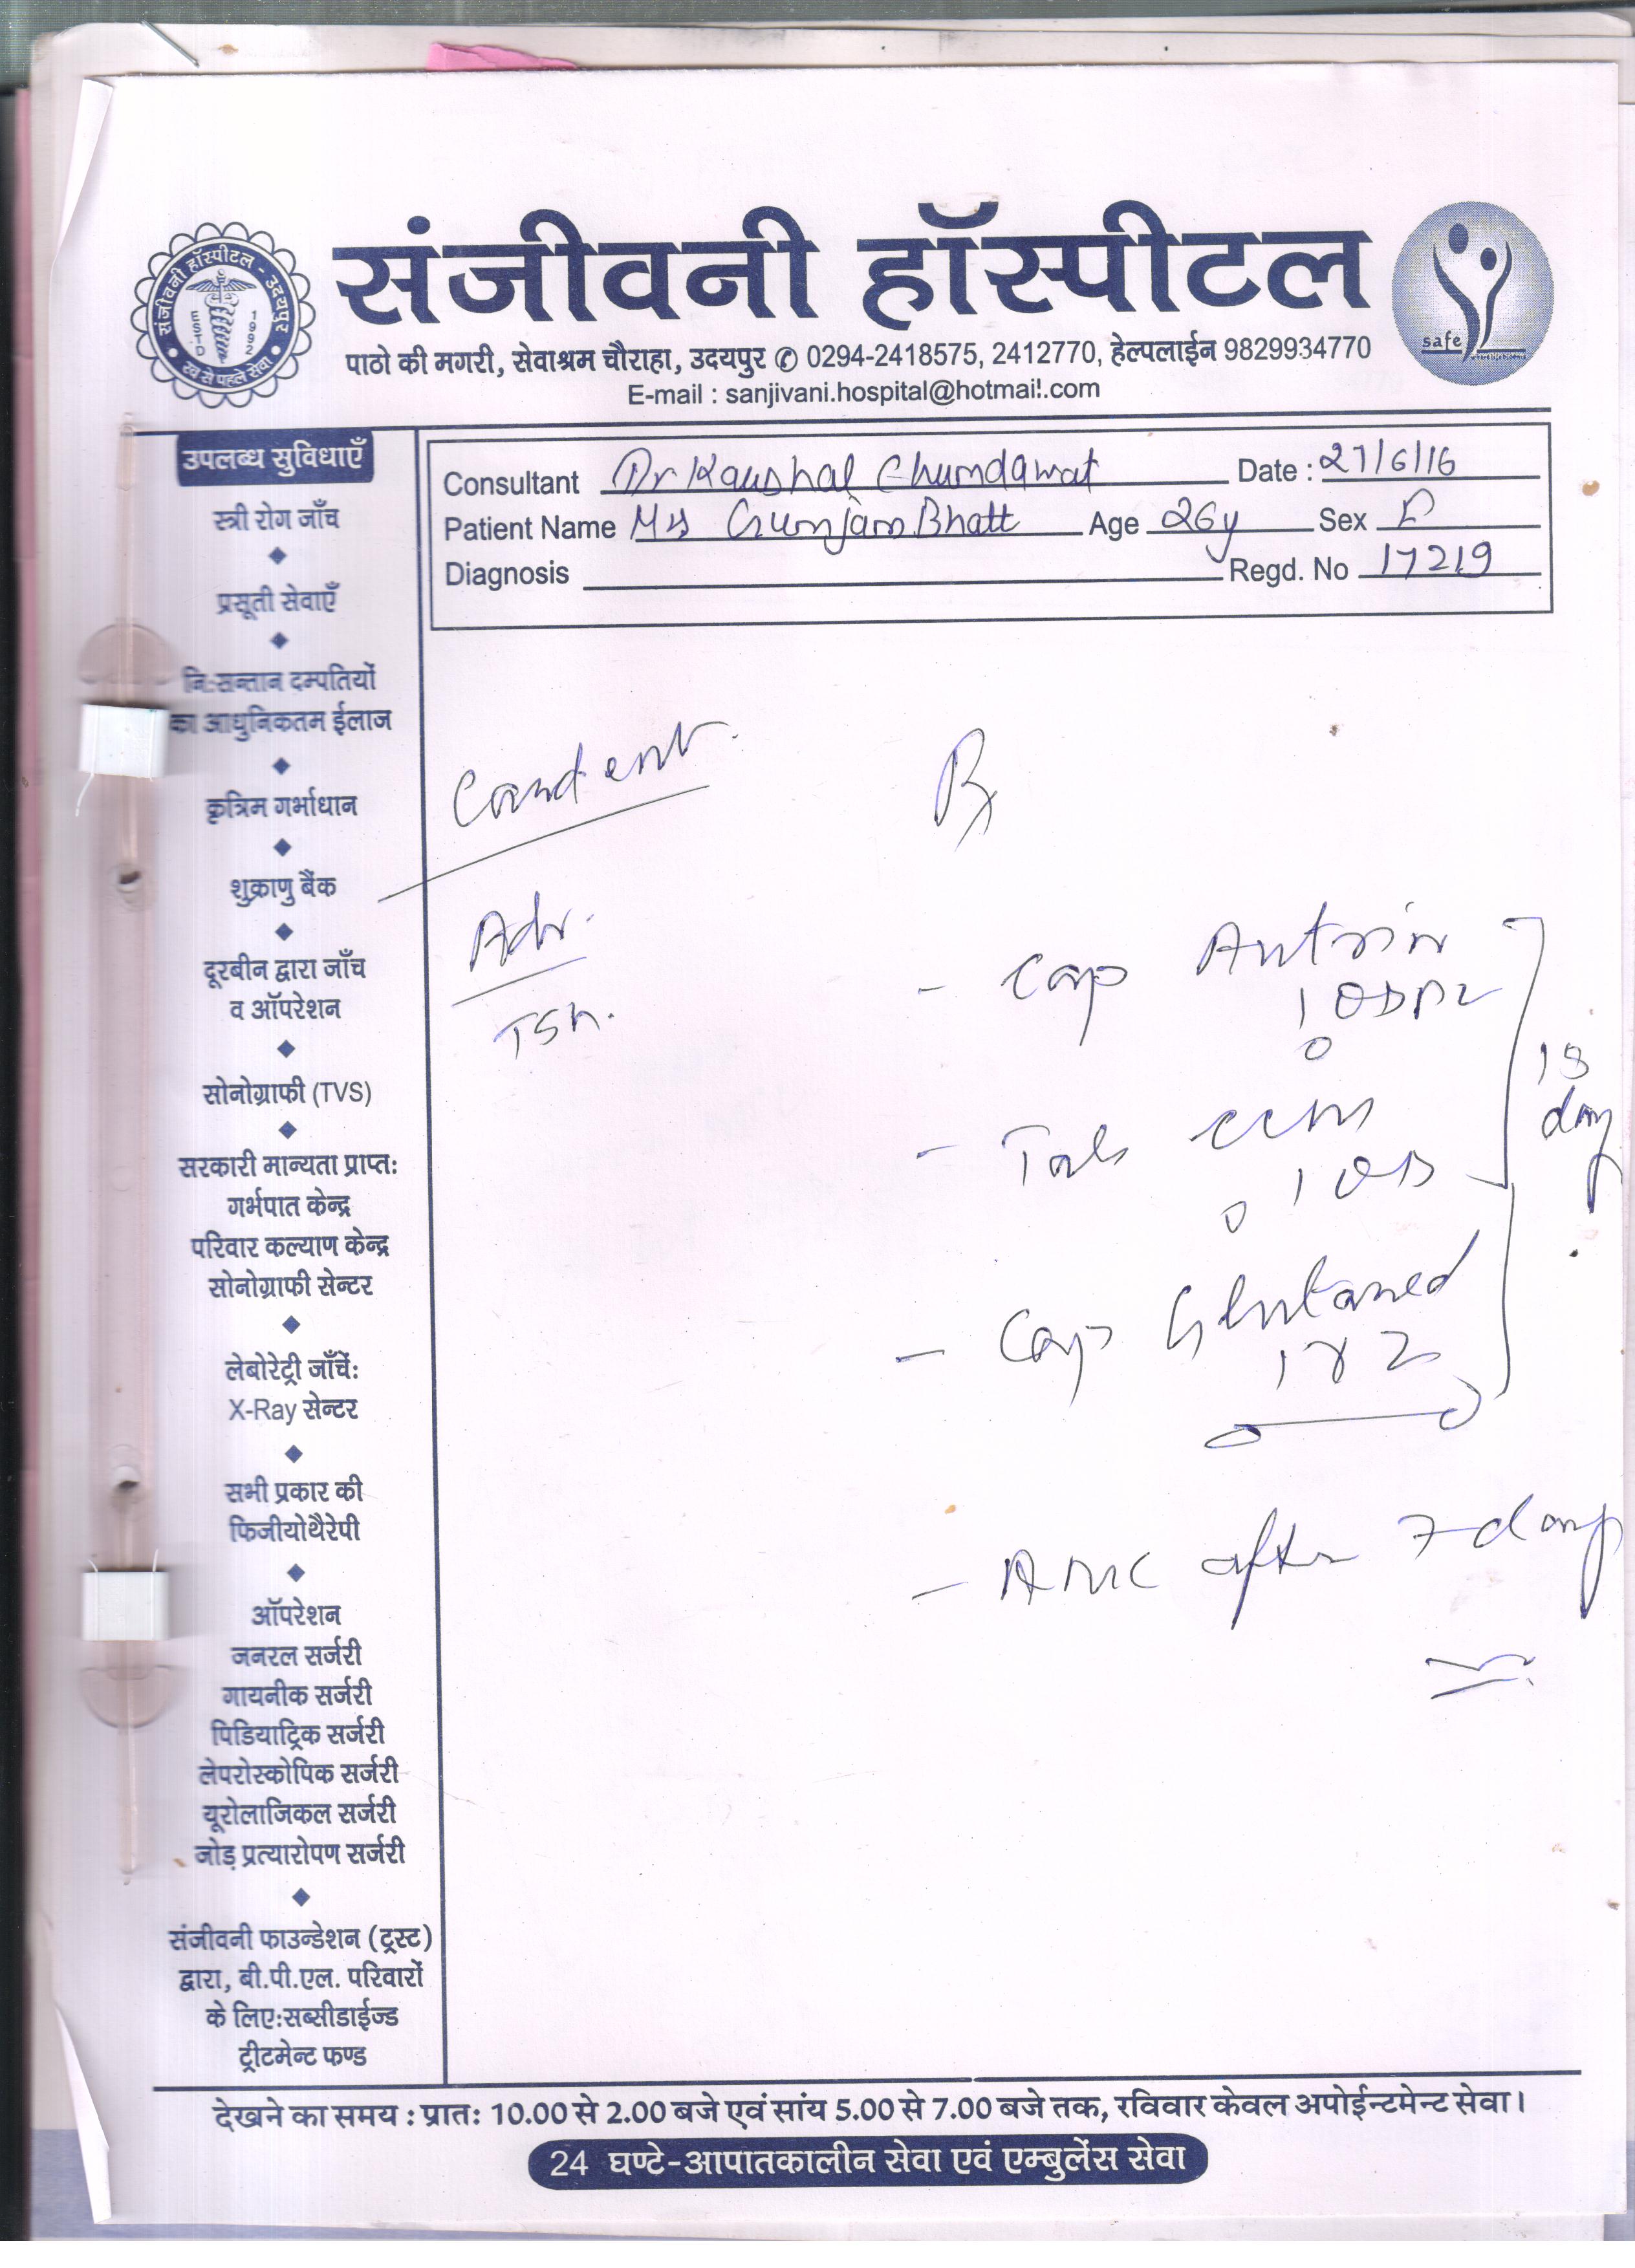 संजीवनी हॉस्पीटल
संजीवनी हॉस्पीटल - उदयपुर
ESTD 1992
safe
पाठो की मगरी, सेवाश्रम चौराहा, उदयपुर ✆ 0294-2418575, 2412770, हेल्पलाईन 9829934770
E-mail : sanjivani.hospital@hotmail.com
Consultant Dr Kaushal Chundawat Date : 27/6/16
Patient Name Mrs Gunjan Bhatt Age 26y Sex F
Diagnosis Regd. No 17219
उपलब्ध सुविधाएँ
स्त्री रोग जाँच
प्रसूती सेवाएँ
नि:सन्तान दम्पतियों
का आधुनिकतम ईलाज
कृत्रिम गर्भाधान
शुक्राणु बैंक
दूरबीन द्वारा जाँच
व ऑपरेशन
सोनोग्राफी (TVS)
सरकारी मान्यता प्राप्त:
गर्भपात केन्द्र
परिवार कल्याण केन्द्र
सोनोग्राफी सेन्टर
लेबोरेट्री जाँचें:
X-Ray सेन्टर
सभी प्रकार की
फिजीयोथैरेपी
ऑपरेशन
जनरल सर्जरी
गायनीक सर्जरी
पिडियाट्रिक सर्जरी
लेपरोस्कोपिक सर्जरी
यूरोलाजिकल सर्जरी
जोड़ प्रत्यारोपण सर्जरी
संजीवनी फाउन्डेशन (ट्रस्ट)
द्वारा, बी.पी.एल. परिवारों
के लिए:सब्सीडाईज्ड
ट्रीटमेन्ट फण्ड
Adv.
TSH.
Rx
- Cap
- Tab CCM
1 OD
- Cap Glutamed
1 x 2
- after 7 days
देखने का समय : प्रातः 10.00 से 2.00 बजे एवं सांय 5.00 से 7.00 बजे तक, रविवार केवल अपोईन्टमेन्ट सेवा।
24 घण्टे-आपातकालीन सेवा एवं एम्बुलेंस सेवा